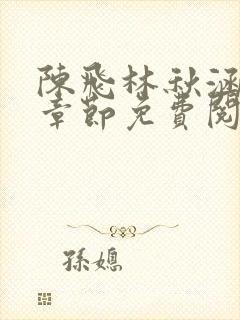 陳飛林秋涵
章節免費閱
孫媳